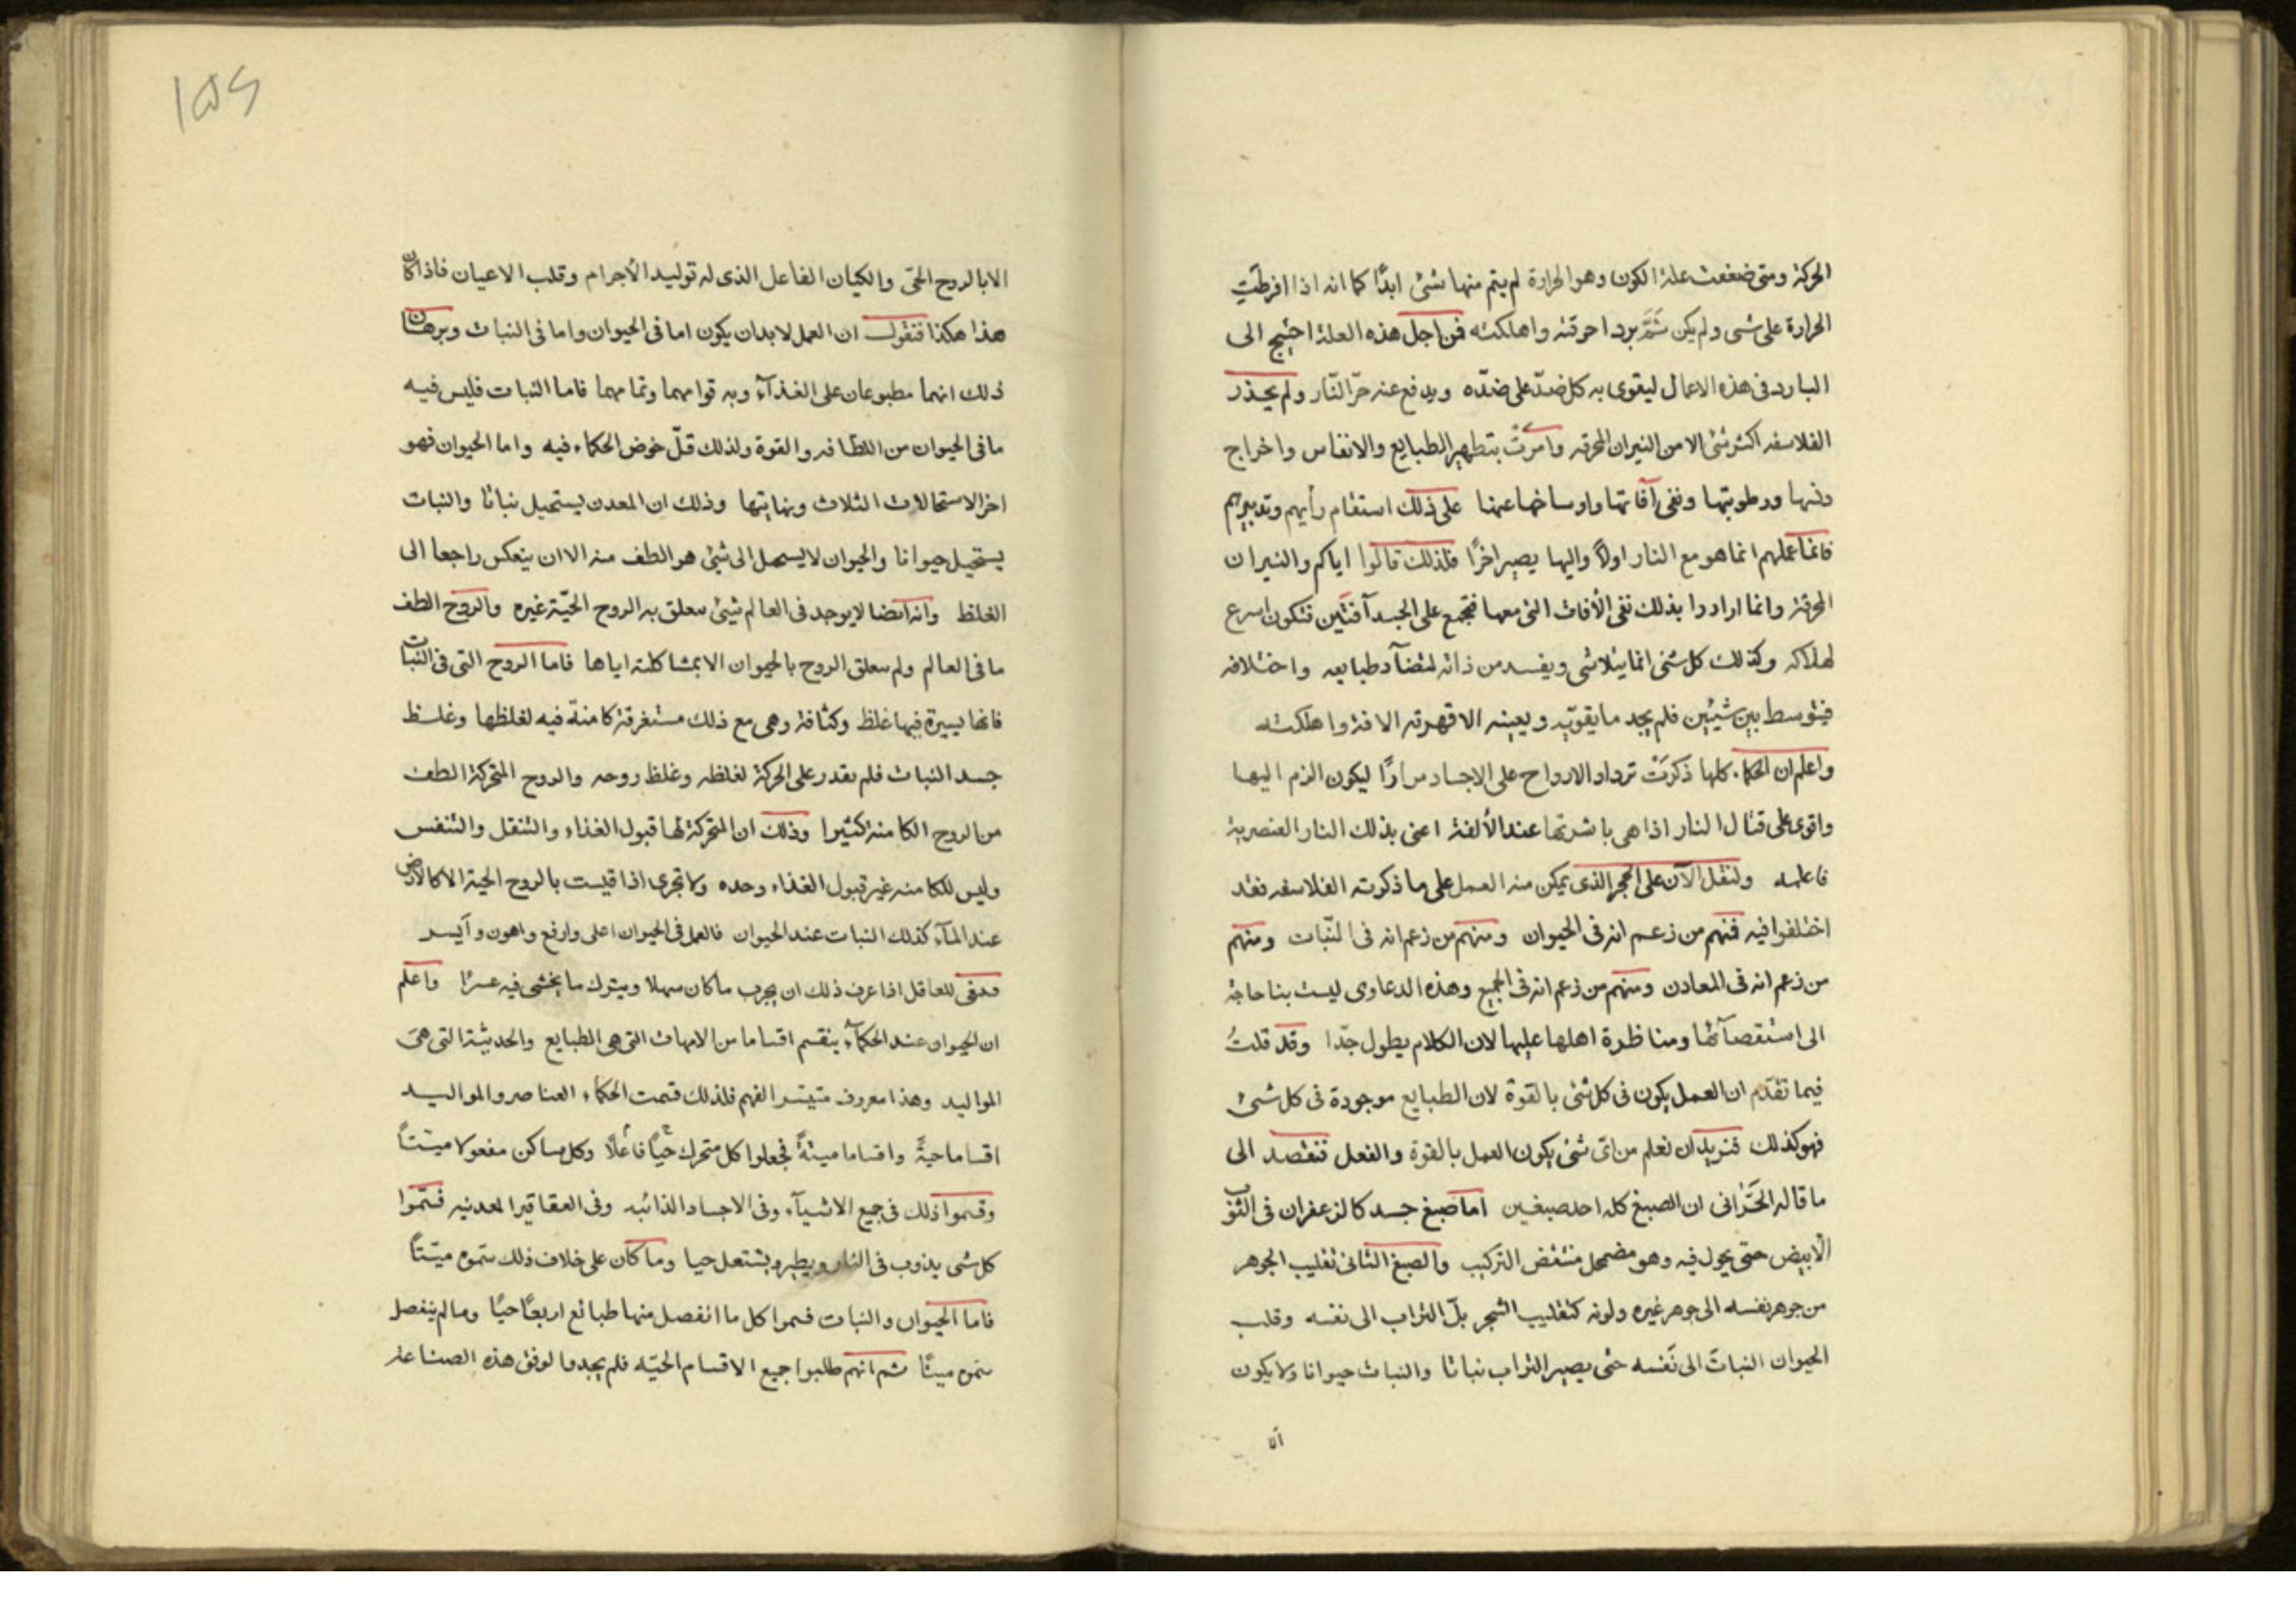 الحركة ومتى ضعفت علة الكون وهو الحرارة لم يتم منها شئ ابدًا كما انه اذا افرطتِ
الحرارة على شى ولم يكن ثَمَّ برد احرقته واهلكته فمن اجل هذه العلة احتيج الى
البارد فى هذه الاعمال ليقوى به كل ضدّ على ضدّه ويدفع عنه حرّ النّار ولم يحذر
الفلاسفه اكثر شئ الا من النيران المحرقه وامرتْ بتطهير الطبايع والانفاس واخراج
دنسها ورطوبتها ونفى آفاتها واوساخها عنها على ذلك استقام رأيهم وتدبيرهم
فانما عملهم انما هو مع النار اولًا واليها يصير اخرًا فلذلك قالوا اياكم والنيران
المحرقة وانما ارادوا بذلك نفى الأفات التى معها فتجمع على الجسد آفتَين فتكون اسرع
لهلاكه وكذلك كل شئ انما يتلاشى ويفسد من ذاته لتضآد طبايعه واختلافه
فيتوسط بين شيئين فلم يجد ما يقويه ويعينه الا قهرته الافة واهلكته
واعلم ان الحكماء كلها ذكرَتْ ترداد الارواح على الاجساد مرارًا ليكون الزم اليها
واقوى على قتال النار اذا هى باشرتها عند الألفة اعنى بذلك النار العنصرية
فاعلمه ولنقل الآن على الحجر الذى يمكن منه العمل على ما ذكرته الفلاسفه فقد
اختلفوا فيه فمنهم من زعم انه فى الحيوان ومنهم من زعم انه فى النّبات ومنهم
من زعم انه فى المعادن ومنهم من زعم انه فى الجميع وهذه الدعاوى ليست بنا حاجة
الى استقصآئها ومناظرة اهلها عليها لان الكلام يطول جدّا وقد قلتُ
فيما تقدّم ان العمل يكون فى كل شئ بالقوة لان الطبايع موجودة فى كل شئ
فهو كذلك فنريد ان نعلم من اىّ شئ يكون العمل بالقوة والفعل فنقصد الى
ما قاله الحَرّانى ان الصبغ كله احد صبغين اما صبغ جسد كالزعفران فى الثوب
الابيض حتى يحول فيه وهو مضمحل منتقض التركيب والصبغ الثانى تقليب الجوهر
من جوهر نفسه الى جوهر غيره ولونه كتقليب الشجر بلّ التراب الى نفسه وقلب
الحيوان النباتَ الى نَفسه حتى يصير التراب نباتا والنبات حيوانا ولا يكون
الا
١٥٢
الا بالروح الحىّ والكيان الفاعل الذى له توليد الأجرام وقلب الاعيان فاذا كان
هذا هكذا فنقول ان العمل لا بد ان يكون اما فى الحيوان واما فى النبات وبرهان
ذلك انهما مطبوعان على الغذآء وبه قوامهما وتمامهما فاما النبات فليس فيه
ما فى الحيوان من اللطافه والقوة ولذلك قلّ خوض الحكماء فيه واما الحيوان فهو
اخر الاستحالات الثلاث ونهايتها وذلك ان المعدن يستحيل نباتا والنبات
يستحيل حيوانا والحيوان لا يستحيل الى شئ هو الطف منه الا ان ينعكس راجعا الى
الغلظ وانه ايضا لا يوجد فى العالم شئ تتعلق به الروح الحيّة غيره والروح الطف
ما فى العالم ولم تتعلق الروح بالحيوان الا بمشاكلته اياها فاما الروح التى فى النبات
فانها يسيرة فيها غلظ وكثافة وهى مع ذلك مستغرقة كامنة فيه لغلظها وغلظ
جسد النبات فلم يقدر على الحركة لغلظه وغلظ روحه والروح المتحركة الطف
من الروح الكامنة كثيرا وذلك ان المتحركة لها قبول الغذاء والتنقل والتنفس
وليس للكامنه غير قبول الغذاء وحده ولا تجرى اذا قيست بالروح الحية الا كالارض
عند المآء كذلك النبات عند الحيوان فالعمل فى الحيوان اعلى وارفع واهون وآيسر
للعاقل اذا عرف ذلك ان يجرب ما كان سهلا ويترك ما يخشى فيه عسرًا واعلم
ان الحيوان عند الحكمآء ينقسم اقساما من الامهات التى هى الطبايع والحديثة التى هى
المواليد وهذا معروف متيسر الفهم فلذلك قسمت الحكماء العناصر والمواليد
اقساما حيةً واقساما ميتةً فجعلوا كل متحرك حيّاً فاعلًا وكل ساكن مفعولا ميتتاً
وقسموا ذلك فى جميع الاشيآء وفى الاجساد الذائبه وفى العقاقير المعدنيه فسّموا
كل شى يذوب فى النار ويطير ويشتعل حيا وما كان على خلاف ذلك سموه ميّتاً
فاما الحيوان والنبات فسموا كل ما انفصل منها طبائع اربعًا حيًا وما لم ينفصل
سموه ميتًا ثم انهم طلبوا جميع الاقسام الحيّه فلم يجدوا لوفق هذه الصناعة